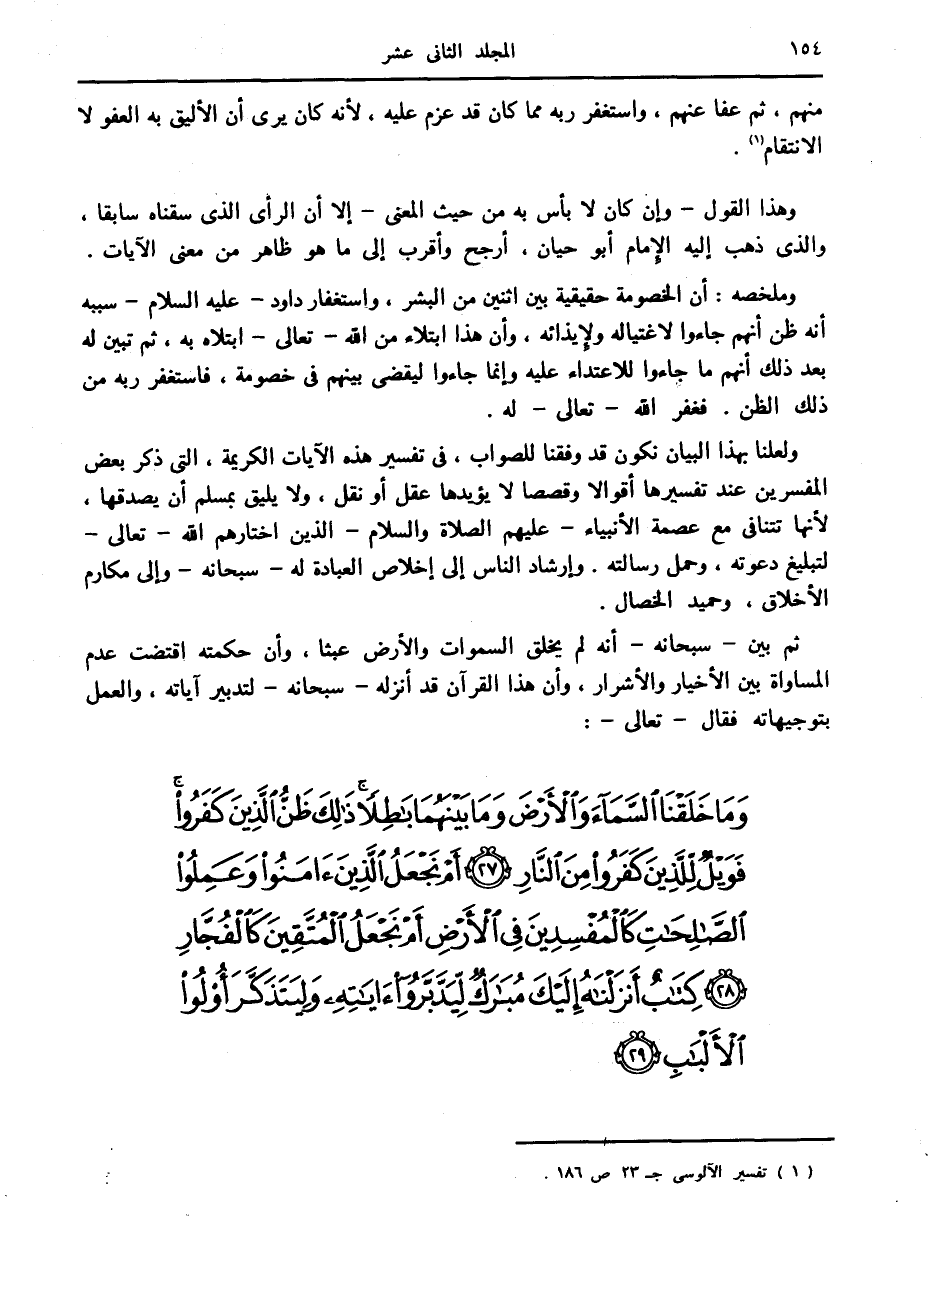 ١٥٤ المجلد الثانى عشر
منهم ، ثم عفا عنهم ، واستغفر ربه مما كان قد عزم عليه ، لأنه كان يرى أن الأليق به العفو لا
الانتقام(١) .
وهذا القول – وإن كان لا بأس به من حيث المعنى – إلا أن الرأى الذى سقناه سابقا ،
والذى ذهب إليه الإمام أبو حيان ، أرجح وأقرب إلى ما هو ظاهر من معنى الآيات .
وملخصه : أن الخصومة حقيقية بين اثنين من البشر ، واستغفار داود – عليه السلام – سببه
أنه ظن أنهم جاءوا لاغتياله ولإيذائه ، وأن هذا ابتلاء من الله – تعالى – ابتلاه به ، ثم تبين له
بعد ذلك أنهم ما جاءوا للاعتداء عليه وإنما جاءوا ليقضى بينهم فى خصومة ، فاستغفر ربه من
ذلك الظن . فغفر الله – تعالى – له .
ولعلنا بهذا البيان نكون قد وفقنا للصواب ، فى تفسير هذه الآيات الكريمة ، التى ذكر بعض
المفسرين عند تفسيرها أقوالا وقصصا لا يؤيدها عقل أو نقل ، ولا يليق بمسلم أن يصدقها ،
لأنها تتنافى مع عصمة الأنبياء – عليهم الصلاة والسلام – الذين اختارهم الله – تعالى –
لتبليغ دعوته ، وحمل رسالته . وإرشاد الناس إلى إخلاص العبادة له – سبحانه – وإلى مكارم
الأخلاق ، وحميد الخصال .
ثم بين – سبحانه – أنه لم يخلق السموات والأرض عبثا ، وأن حكمته اقتضت عدم
المساواة بين الأخيار والأشرار ، وأن هذا القرآن قد أنزله – سبحانه – لتدبير آياته ، والعمل
بتوجيهاته فقال – تعالى – :
وَمَا خَلَقْنَا ٱلسَّمَآءَ وَٱلْأَرْضَ وَمَا بَيْنَهُمَا بَٰطِلًا ۚ ذَٰلِكَ ظَنُّ ٱلَّذِينَ كَفَرُوا۟ ۚ
فَوَيْلٌ لِّلَّذِينَ كَفَرُوا۟ مِنَ ٱلنَّارِ ﴿٢٧﴾ أَمْ نَجْعَلُ ٱلَّذِينَ ءَامَنُوا۟ وَعَمِلُوا۟
ٱلصَّٰلِحَٰتِ كَٱلْمُفْسِدِينَ فِى ٱلْأَرْضِ أَمْ نَجْعَلُ ٱلْمُتَّقِينَ كَٱلْفُجَّارِ
﴿٢٨﴾ كِتَٰبٌ أَنزَلْنَٰهُ إِلَيْكَ مُبَٰرَكٌ لِّيَدَّبَّرُوٓا۟ ءَايَٰتِهِۦ وَلِيَتَذَكَّرَ أُو۟لُوا۟
ٱلْأَلْبَٰبِ ﴿٢٩﴾
( ١ ) تفسير الآلوسى جـ ٢٣ ص ١٨٦ .